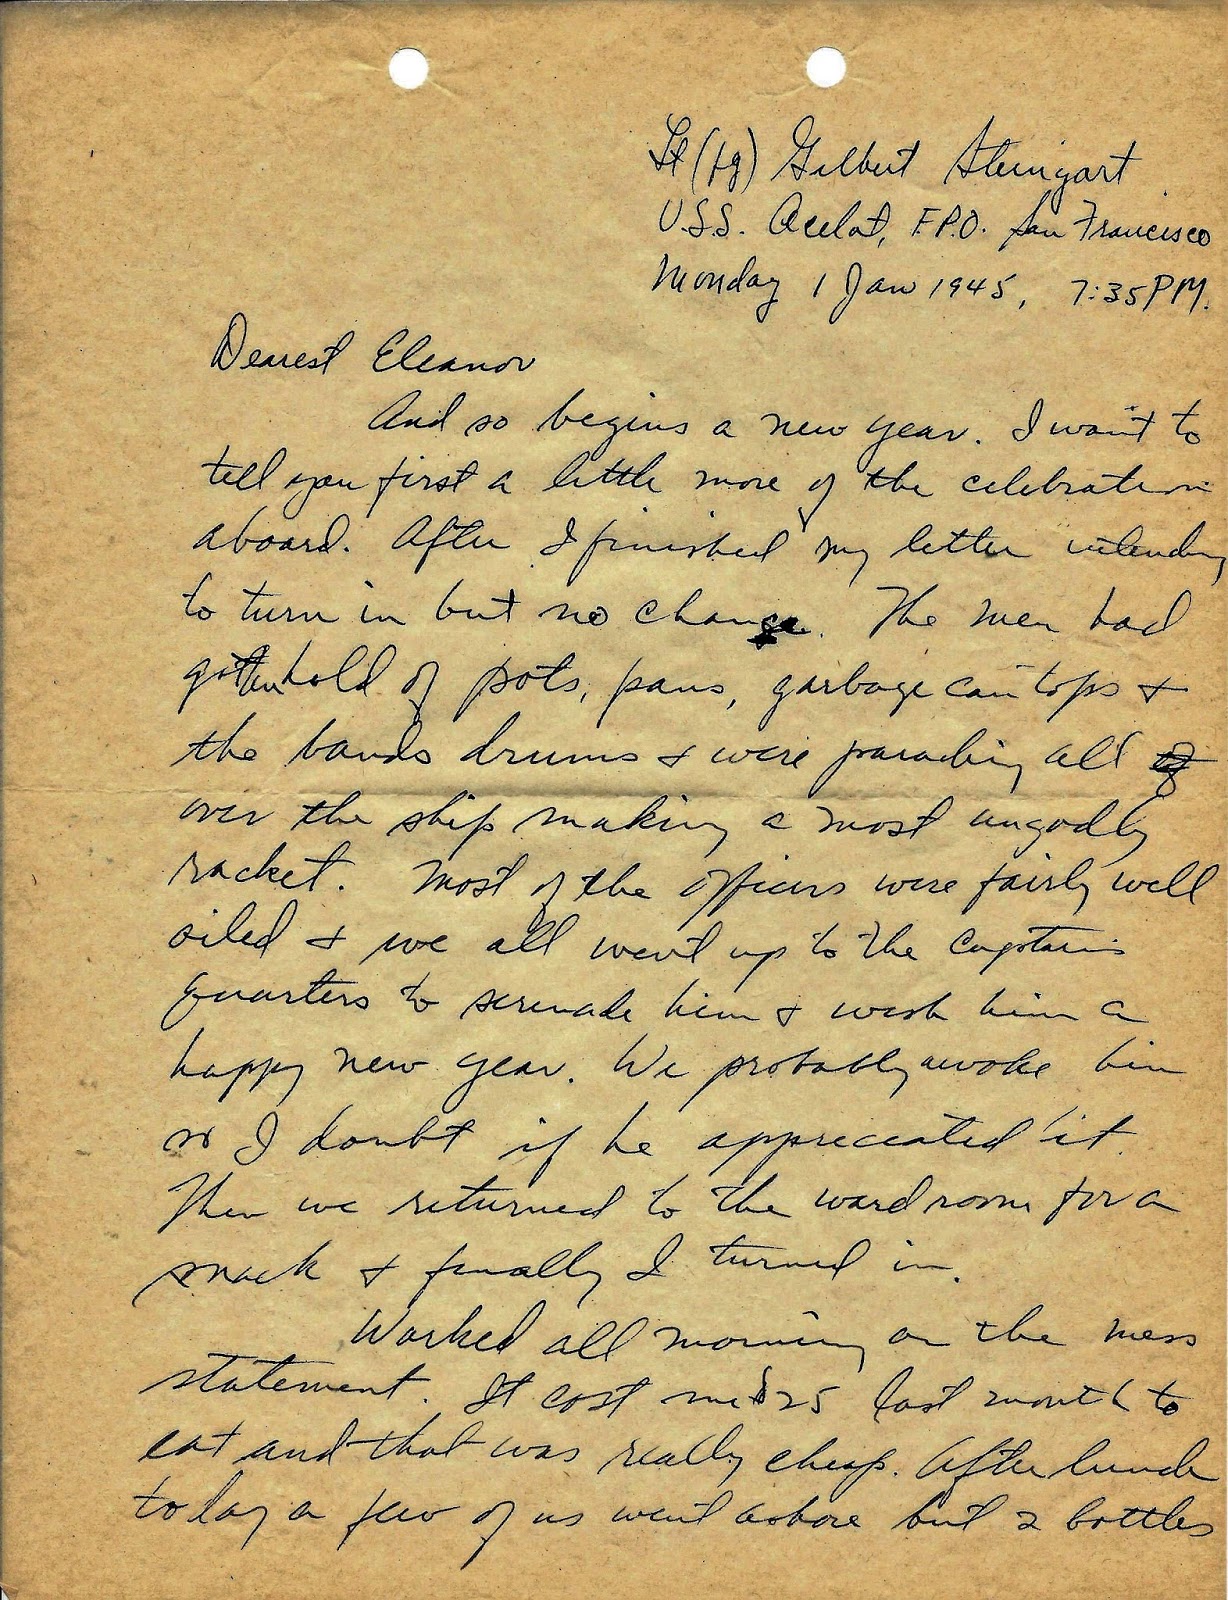 Lt (jg) Gilbert Steingart
U.S.S. Ocelot, F.P.O. San Francisco
Monday 1 Jan 1945, 7:35 PM.
Dearest Eleanor
And so begins a new year. I want to
tell you first a little more of the celebration
aboard. After I finished my letter intending
to turn in but no change. The men had
gotten hold of pots, pans, garbage can tops +
the bands drums + were parading all
over the ship making a most ungodly
racket. Most of the officers were fairly well
oiled + we all went up to the Captains
quarters to serenade him + wish him a
happy new year. We probably awoke him
I doubt if he appreciated it.
Then we returned to the wardroom for a
snack + finally I turned in.
Worked all morning on the mess
statement. It cost me $25 last month to
eat and that was really cheap. After lunch
today a few of us went ashore but 2 bottles